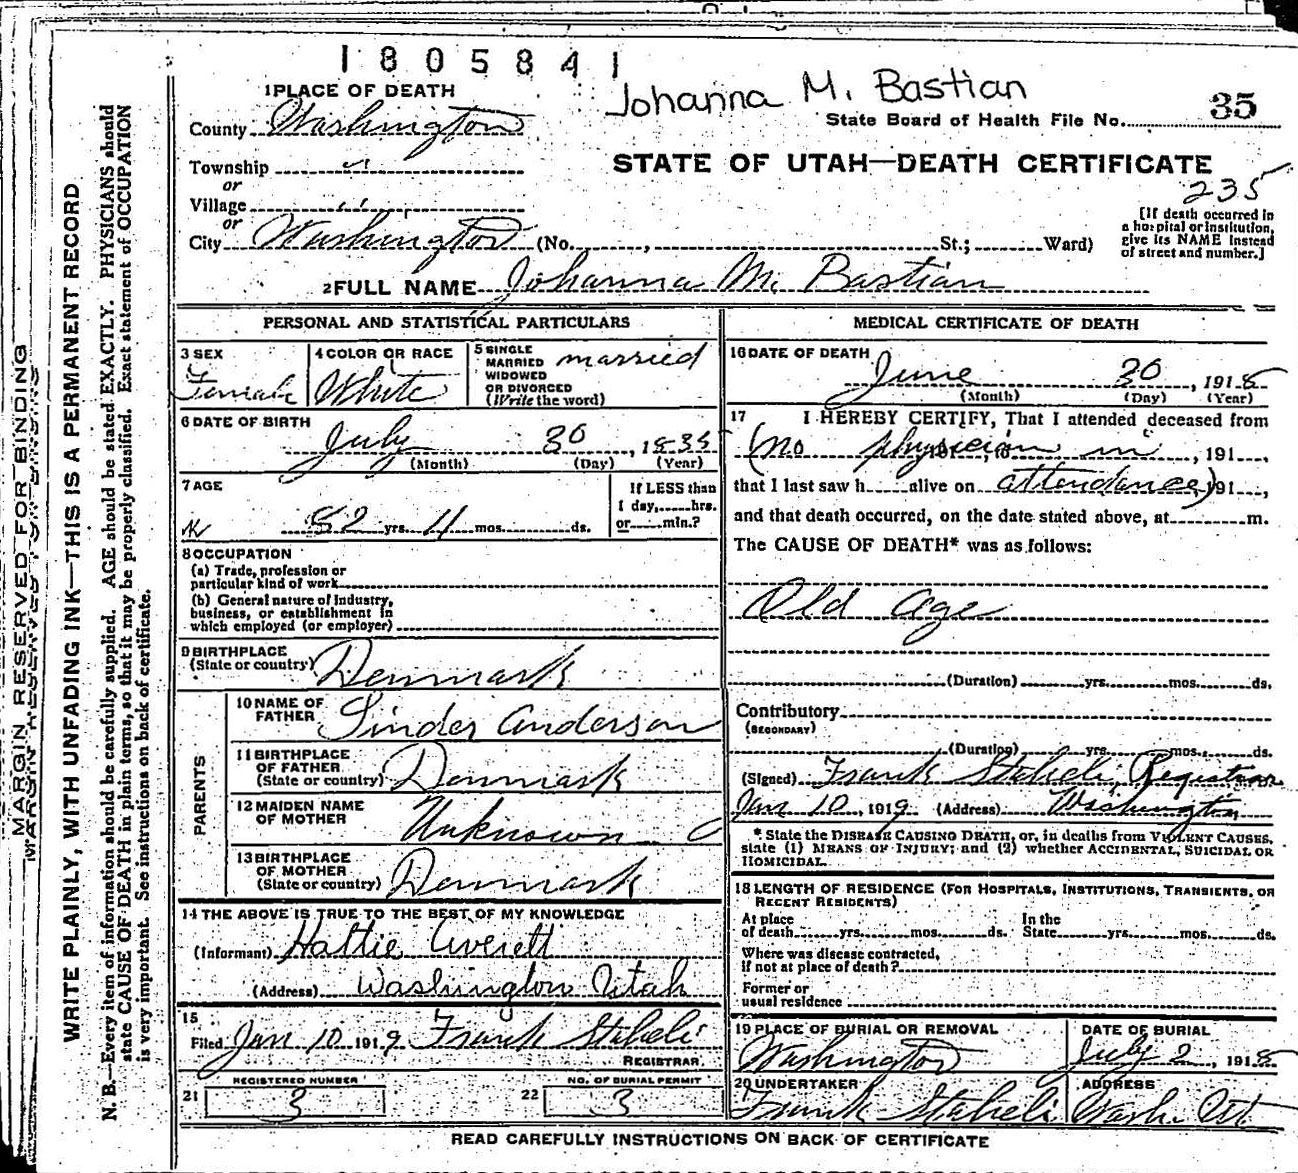 1805841
Johanna M. Bastian
1 PLACE OF DEATH
State Board of Health File No. 35
County Washington
STATE OF UTAH—DEATH CERTIFICATE
Township " 
or
235
Village " "
or
City Washington (No. , St.; Ward)
[If death occurred in a hospital or institution, give its NAME instead of street and number.]
2 FULL NAME Johanna M. Bastian
PERSONAL AND STATISTICAL PARTICULARS
3 SEX Female
4 COLOR OR RACE White
5 SINGLE MARRIED WIDOWED OR DIVORCED (Write the word) married
6 DATE OF BIRTH July 30, 1835
(Month) (Day) (Year)
7 AGE
82 yrs. 11 mos. ds.
If LESS than 1 day, hrs. or min.?
8 OCCUPATION
(a) Trade, profession or
particular kind of work
(b) General nature of Industry,
business, or establishment in
which employed (or employer)
9 BIRTHPLACE
(State or country) Denmark
PARENTS
10 NAME OF FATHER Linder Anderson
11 BIRTHPLACE OF FATHER (State or country) Denmark
12 MAIDEN NAME OF MOTHER Unknown
13 BIRTHPLACE OF MOTHER (State or country) Denmark
14 THE ABOVE IS TRUE TO THE BEST OF MY KNOWLEDGE
(Informant) Hattie Averett
(Address) Washington Utah
15
Filed Jan 10 1919 Frank Staheli
REGISTRAR
21 REGISTERED NUMBER 3
22 NO. OF BURIAL PERMIT 3
MEDICAL CERTIFICATE OF DEATH
16 DATE OF DEATH June 30, 1918
(Month) (Day) (Year)
17 I HEREBY CERTIFY, That I attended deceased from
(no physician in , 191 ,
that I last saw h alive on attendance) 191 ,
and that death occurred, on the date stated above, at m.
The CAUSE OF DEATH* was as follows:
Old age
(Duration) yrs. mos. ds.
Contributory
(SECONDARY)
(Duration) yrs. mos. ds.
(Signed) Frank Staheli Registrar
Jan 10, 1919 (Address) Washington
* State the DISEASE CAUSING DEATH, or, in deaths from VIOLENT CAUSES,
state (1) MEANS OF INJURY; and (2) whether ACCIDENTAL, SUICIDAL OR
HOMICIDAL.
18 LENGTH OF RESIDENCE (FOR HOSPITALS, INSTITUTIONS, TRANSIENTS, OR
RECENT RESIDENTS)
At place of death yrs. mos. ds. In the State yrs. mos. ds.
Where was disease contracted,
if not at place of death?
Former or
usual residence
19 PLACE OF BURIAL OR REMOVAL Washington
DATE OF BURIAL July 2, 1918
20 UNDERTAKER Frank Staheli
ADDRESS Wash. Ut
READ CAREFULLY INSTRUCTIONS ON BACK OF CERTIFICATE
MARGIN RESERVED FOR BINDING
WRITE PLAINLY, WITH UNFADING INK—THIS IS A PERMANENT RECORD
N. B.—Every item of information should be carefully supplied. AGE should be stated EXACTLY. PHYSICIANS should
state CAUSE OF DEATH in plain terms, so that it may be properly classified. Exact statement of OCCUPATION
is very important. See instructions on back of certificate.